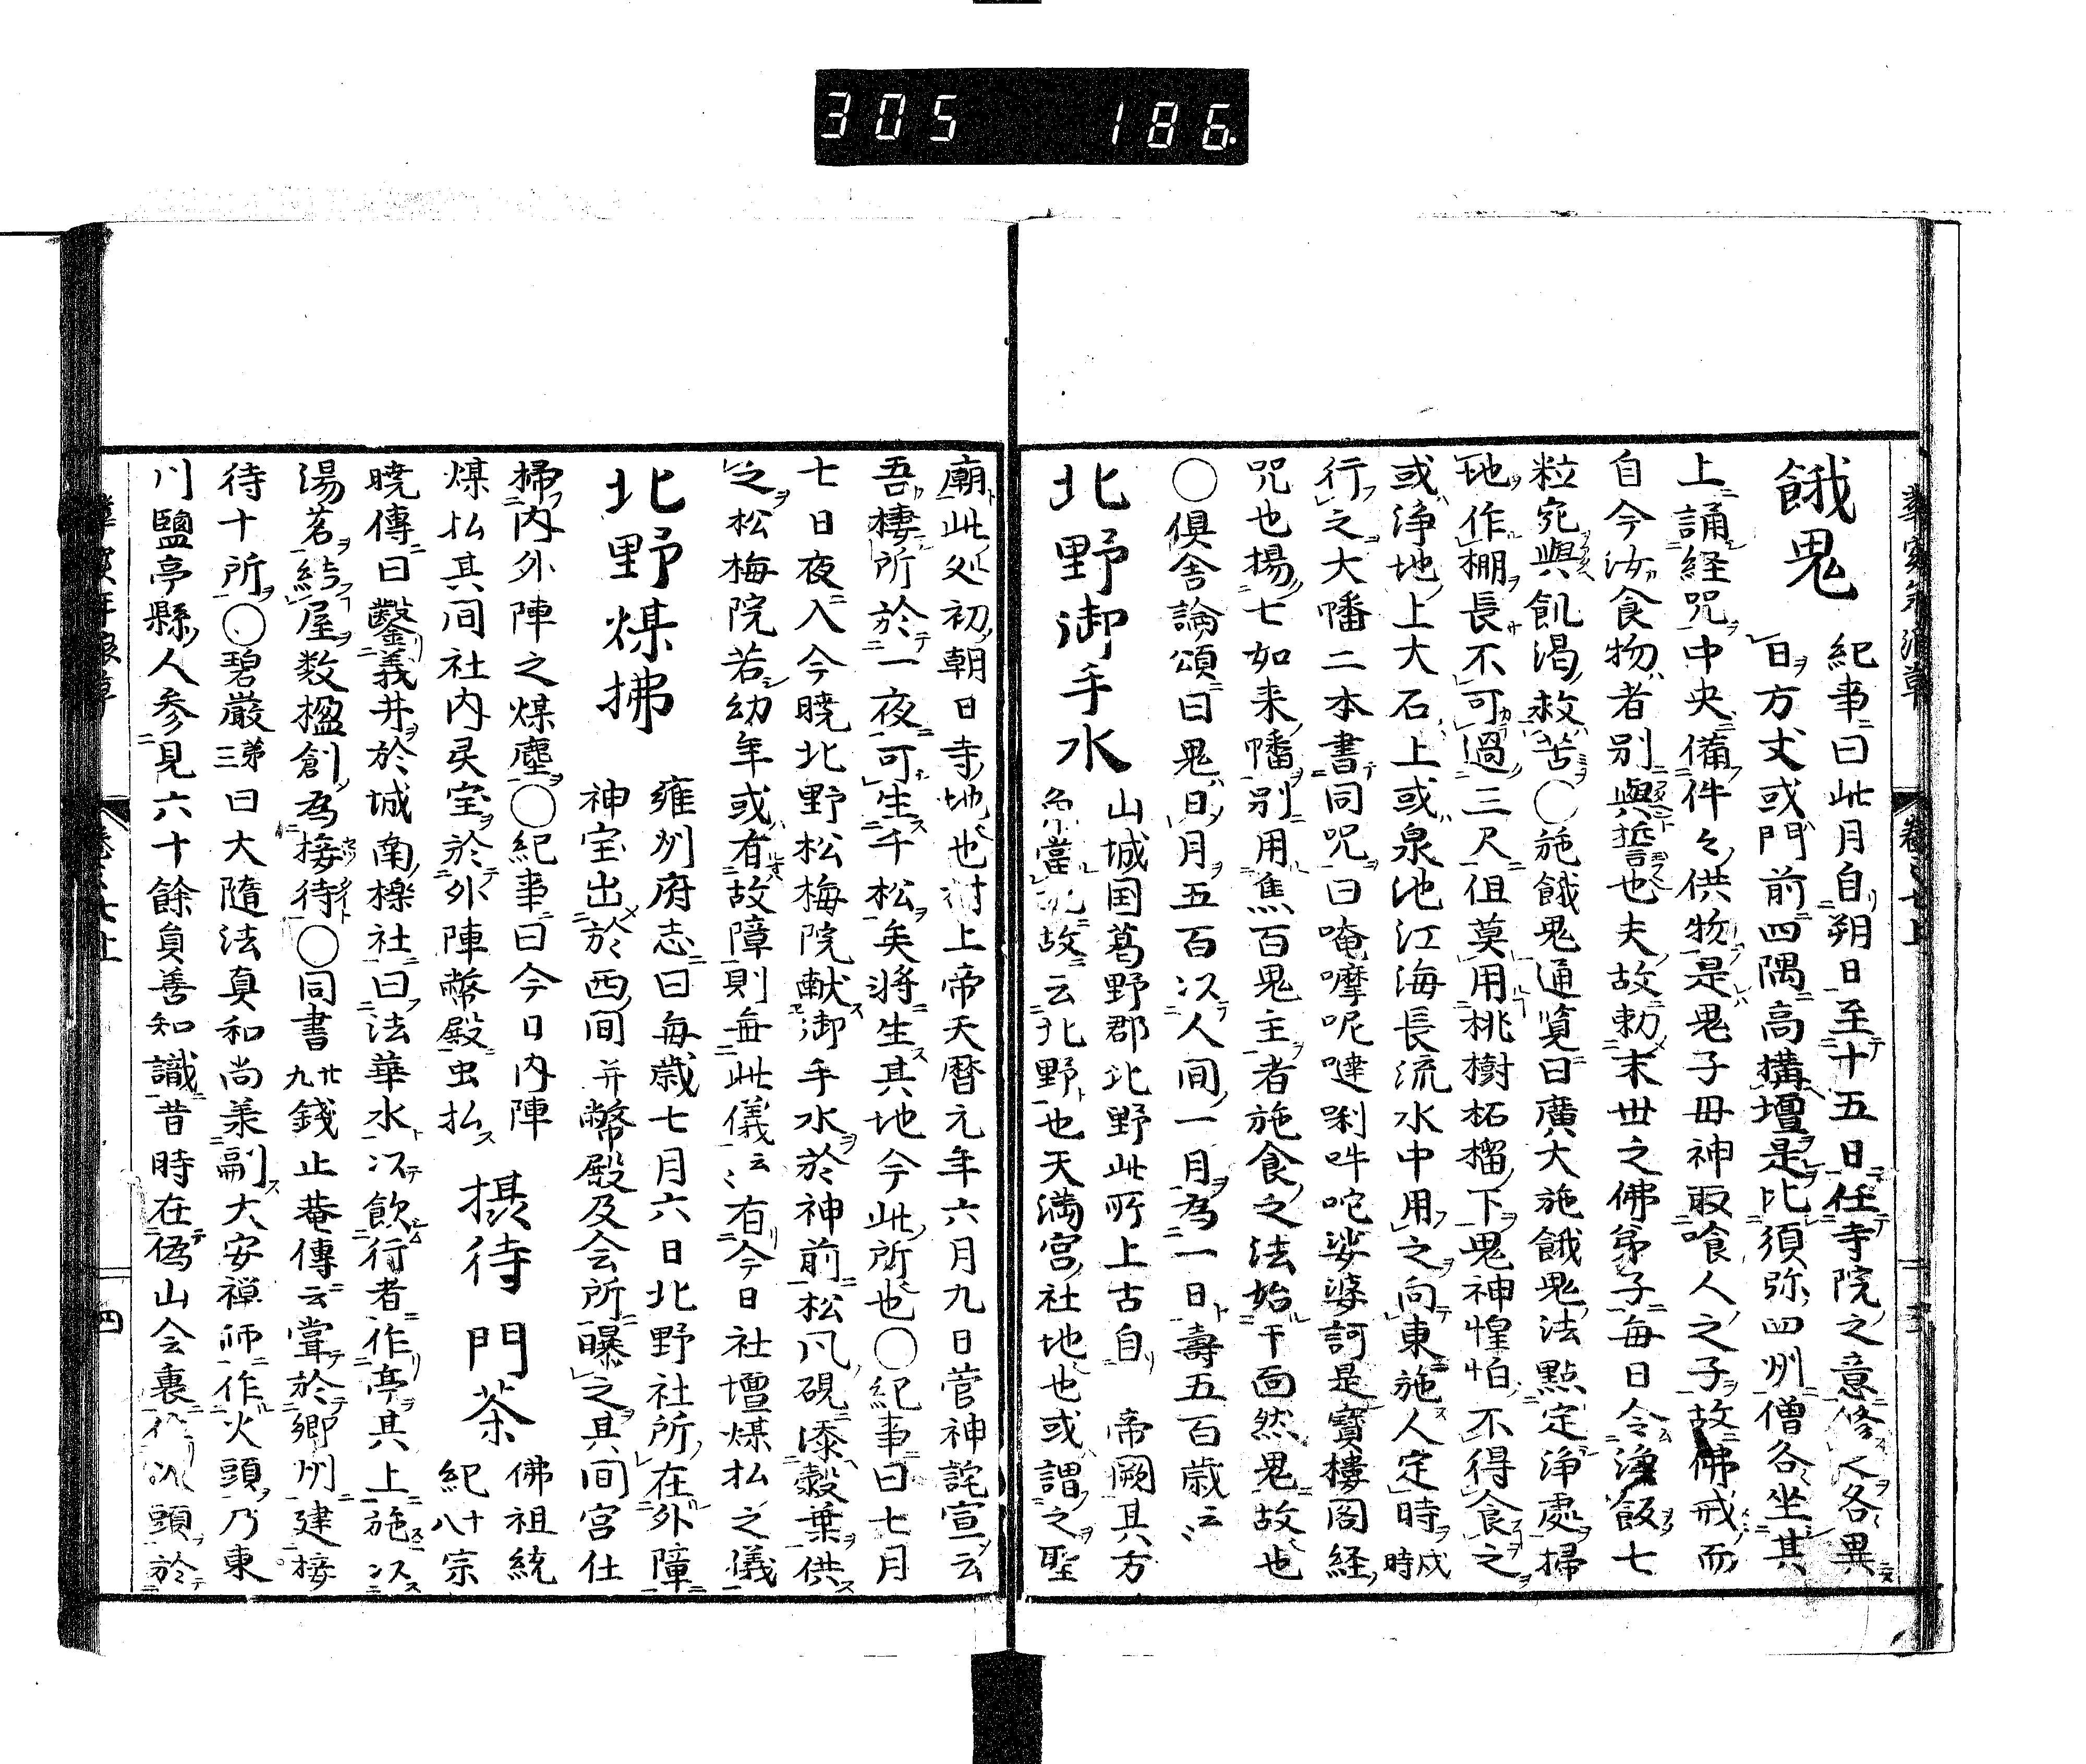 305 186
餓鬼
紀事曰此月自朔日至十五日任寺院之意修之各異
日方丈或門前四隅高搆壇是比須弥四州僧各坐其
上誦経咒中央備件々供物是鬼子母神取喰人之子故佛戒而
自今汝食物者別與誓也夫故勅末世之佛弟子毎日令浄飯七
粒宛與飢渇救苦〇施餓鬼通覧曰廣大施餓鬼法點定浄處掃
地作棚長不可過三尺但莫用桃樹柘榴下鬼神惶怕不得食之
或浄地上大石上或泉池江海長流水中用之向東施人定時戌時
行之大幡二本書同咒曰唵嚩呢噠唎吽咜娑婆訶是寶樓閣経
咒也揚七如来幡別用焦百鬼主者施食之法始于面然鬼故也
〇倶舎論頌曰鬼日月五百以人间一月為一日壽五百歳云〻
北野御手水
山城国葛野郡北野此所上古自 帝闕其方
角當北故云北野也天満宮社地也或謂之聖
廟此処初朝日寺地也村上帝天暦元年六月九日菅神詫宣云
吾棲所於一夜可生千松矣将生其地今此所也〇紀事曰七月
七日夜入今暁北野松梅院献御手水於神前松風硯添穀葉供
之松梅院若幼年或有故障則無此儀云〻有今日社壇煤払之儀
北野煤拂
雍州府志曰毎歳七月六日北野社所在外障
神宝出於西间并幣殿及会所曝之其间宮仕
掃内外陣之煤塵〇紀事曰今日内陣
煤払其间社内灵宝於外陣幣殿虫払
摂待 門茶
佛祖統
紀十八宗
暁傳曰鑿義井於城南櫟社曰法華水以飲行者作亭其上施以
湯茗結屋数楹創為接待〇同書廿九銭止菴傳云嘗於郷州建接
待十所〇碧巌第三曰大隨法真和尚羕嗣大安禅師作火頭乃東
川鹽亭縣人参見六十餘員善知識昔時在偽山会裏作 頭於
四